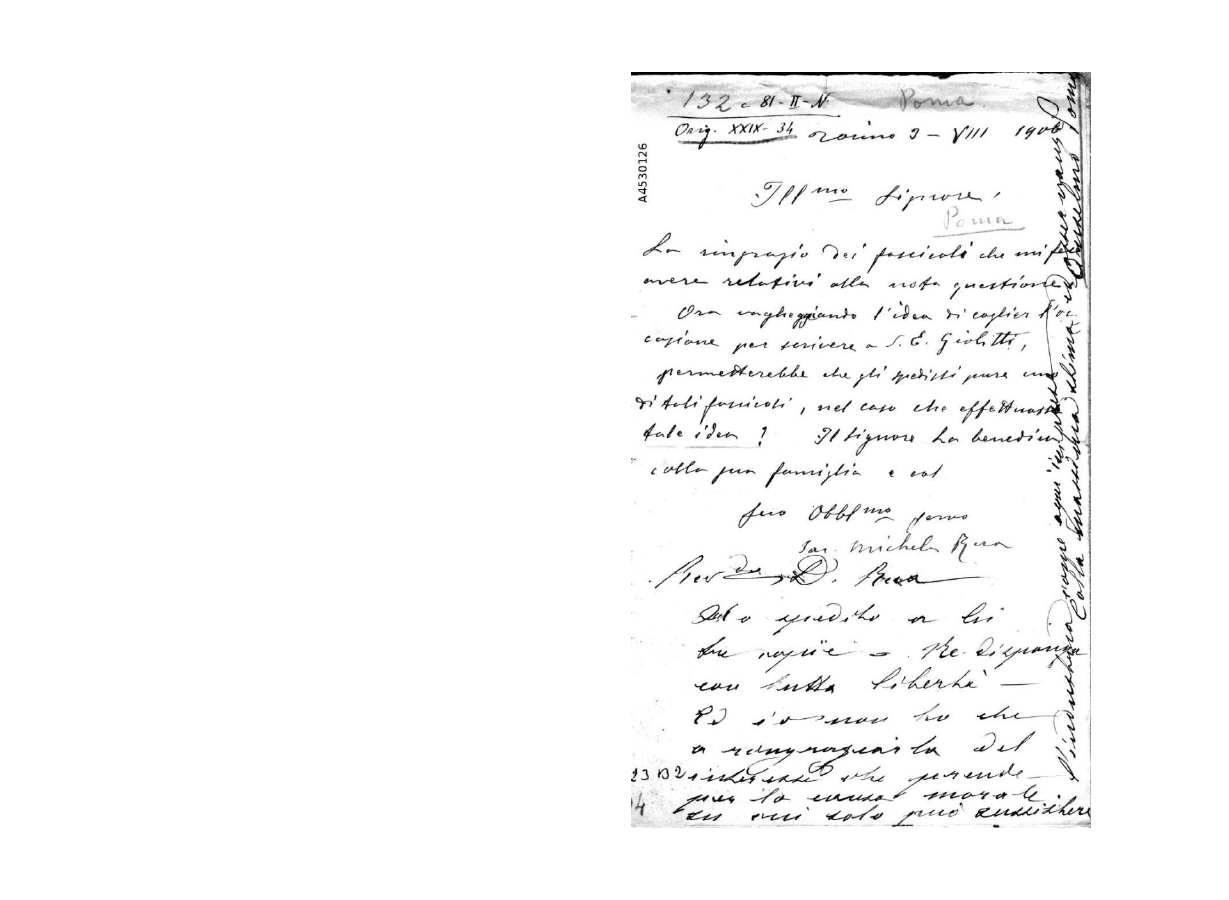 132 c 81-II-N.
Poma
Orig. XXIX-34
Torino 3 - VIII 1906
A4530126
Ill.mo Signore,
Poma
La ringrazio dei fascicoli che mi fe
avere relativi alla nota questione
Ora vagheggiando l'idea di coglier l'oc
casione per scrivere a S. E. Giolitti,
permetterebbe che gli spedissi pure uno
di tali fascicoli, nel caso che effettuassi
tale idea? Il Signore La benedica
colla sua famiglia e col
Suo Obbl.mo servo
Sac. Michele Rua
D. Rua
Ho spedito a Lei
tre copie - Ne disponga
con tutta libertà -
Ed io non ho che
a ringraziarla del
interesse che prende
per la causa morale
su cui solo può sussistere
l'industria come ogni impresa ed
Colla massima stima
Anselmo Poma
23 B2
4